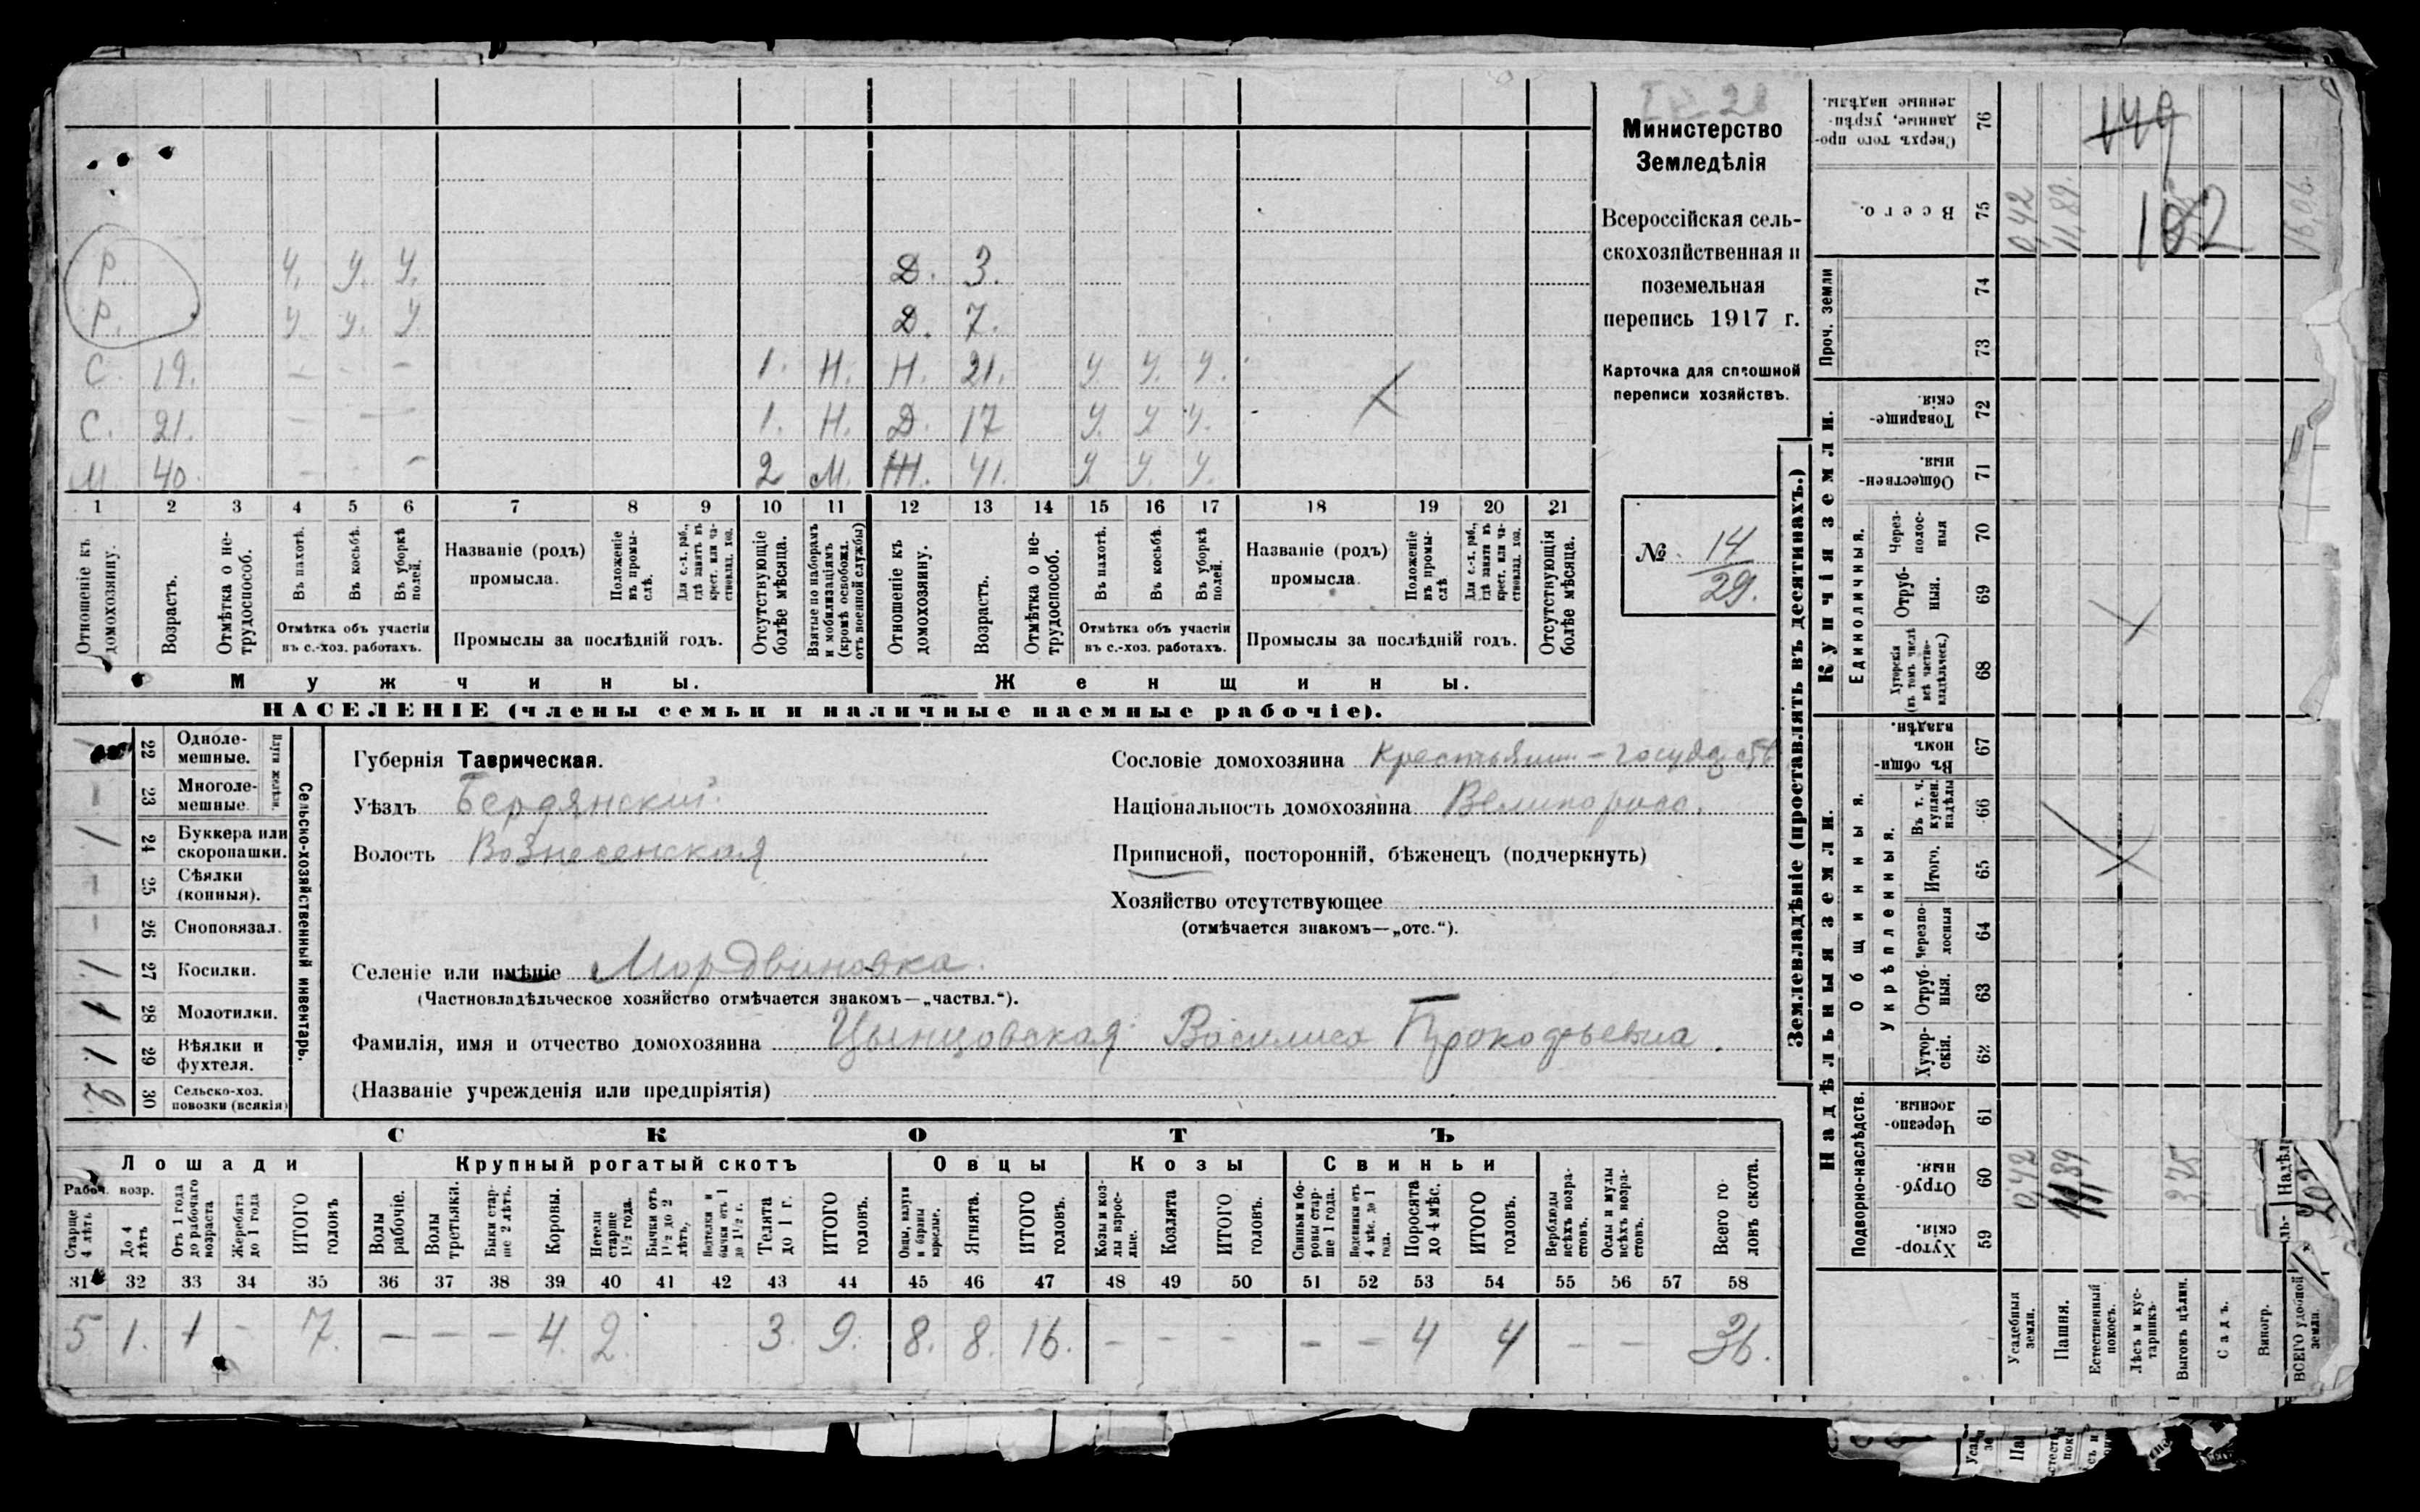 Министерство
Земледѣлія
Всероссійская сель-
скохозяйственная и
поземельная
перепись 1917 г.
Карточка для сплошной
переписи хозяйствъ.
№ 14
29.
Р. У. У. У. Д. 3.
Р. У У. У Д. 7.
С. 19. – - – 1. Н. Н. 21. У У. У.
С. 21. – – 1. Н. Д. 17 У. У У.
М. 40. – - – 2 М. Ж. 41. У. У. У.
1 2 3 4 5 6 7 8 9 10 11 12 13 14 15 16 17 18 19 20 21
Отношеніе къ домохозяину.
Возрастъ.
Отмѣтка о не-трудоспособ.
Въ пахотѣ.
Въ косьбѣ.
Въ уборкѣ полей.
Отмѣтка объ участіи
въ с.-хоз. работахъ.
Названіе (родъ)
промысла.
Положеніе въ промы-слѣ.
Для с.-х. раб., гдѣ занятъ въ крест. или ча-стновлад. хоз.
Промыслы за послѣдній годъ.
Отсутствующіе болѣе мѣсяца.
Взятые по наборамъ и мобилизаціямъ (кромѣ освобожд. отъ военной службы)
Отношеніе къ домохозяину.
Возрастъ.
Отмѣтка о не-трудоспособ.
Въ пахотѣ.
Въ косьбѣ.
Въ уборкѣ полей.
Отмѣтка объ участіи
въ с.-хоз. работахъ.
Названіе (родъ)
промысла.
Положеніе въ промы-слѣ
Для с.-х. раб., гдѣ занята въ крест. или ча-стновлад. хоз.
Промыслы за послѣдній годъ.
Отсутствующія болѣе мѣсяца.
Мужчины.
Женщины.
НАСЕЛЕНІЕ (члены семьи и наличные наемные рабочіе).
Сельско-хозяйственный инвентарь.
Плуги желѣзн.
22 Одноле-мешные.
– 23 Многоле-мешные.
1 24 Буккера или скоропашки.
– 25 Сѣялки (конныя).
– 26 Сноповязал.
1 27 Косилки.
1 28 Молотилки.
1 29 Вѣялки и фухтеля.
2 30 Сельско-хоз. повозки (всякія)
Губернія Таврическая.
Уѣздъ Бердянскій.
Волость Вознесенская
Сословіе домохозяина
Національность домохозяина Великоросс.
Приписной, посторонній, бѣженецъ (подчеркнуть)
Хозяйство отсутствующее
(отмѣчается знакомъ—„отс.“).
Селеніе или имѣніе Мордвиновка.
(Частновладѣльческое хозяйство отмѣчается знакомъ—„частвл.“).
Фамилія, имя и отчество домохозяина Цынцовская Василиса Прокофьевна.
(Названіе учрежденія или предпріятія)
СКОТЪ
Лошади
Крупный рогатый скотъ
Овцы
Козы
Свиньи
Рабоч. возр.
Старше 4 лѣтъ
До 4 лѣтъ
Отъ 1 года до рабочаго возраста
Жеребята до 1 года
ИТОГО головъ
Волы рабочіе.
Волы третьяки.
Быки стар-ше 2 лѣтъ.
Коровы.
Нетели старше 1½ года.
Бычки отъ 1½ до 2 лѣтъ,
Телята до 1 г.
ИТОГО головъ.
Ягнята.
ИТОГО головъ.
Козы и коз-лы взрос-лые.
Козлята
ИТОГО головъ.
Свиньи и бо-ровы стар-ше 1 года.
Подсвинки отъ 4 мѣс. до 1 года.
Поросята до 4 мѣс.
ИТОГО головъ.
Верблюды всѣхъ возра-стовъ.
Ослы и мулы всѣхъ возра-стовъ.
Всего го-ловъ скота.
31 32 33 34 35 36 37 38 39 40 41 42 43 44 45 46 47 48 49 50 51 52 53 54 55 56 57 58
5 1. 1 – 7. – – – 4. 2. 3. 9. 8. 8. 16. – – – – – 4 4 – – 36.
Землевладѣніе (проставлять въ десятинахъ.)
Надѣльныя земли.
Купчія земли.
Проч. земли
Подворно-наслѣдств.
Общинныя.
Укрѣпленныя.
Единоличныя.
Сверхъ того про-данные, укрѣп-ленные надѣлы. 76
Всего. 75
74
73
Товарище-скія. 72
Обществен-ныя. 71
Через-полос-ныя 70
Отруб-ныя. 69
Хуторскія (въ томъ числѣ всѣ частно-владѣльческ.) 68
Въ общи-номъ владѣн. 67
Въ т. ч. куплен. надѣлы 66
Итого. 65
Черезпо-лосныя 64
Отруб-ныя. 63
Хутор-скія. 62
Черезпо-лосныя. 61
Отруб-ныя. 60
Хутор-скія. 59
Усадебныя земли.
Пашня.
Естественный покосъ.
Лѣсъ и кус-тарникъ
Выгонъ цѣлин.
Садъ.
Виногр.
ВСЕГО удобной земли.
149
182
0,42
11,89.
16,06.
0,42
11,89
3,75